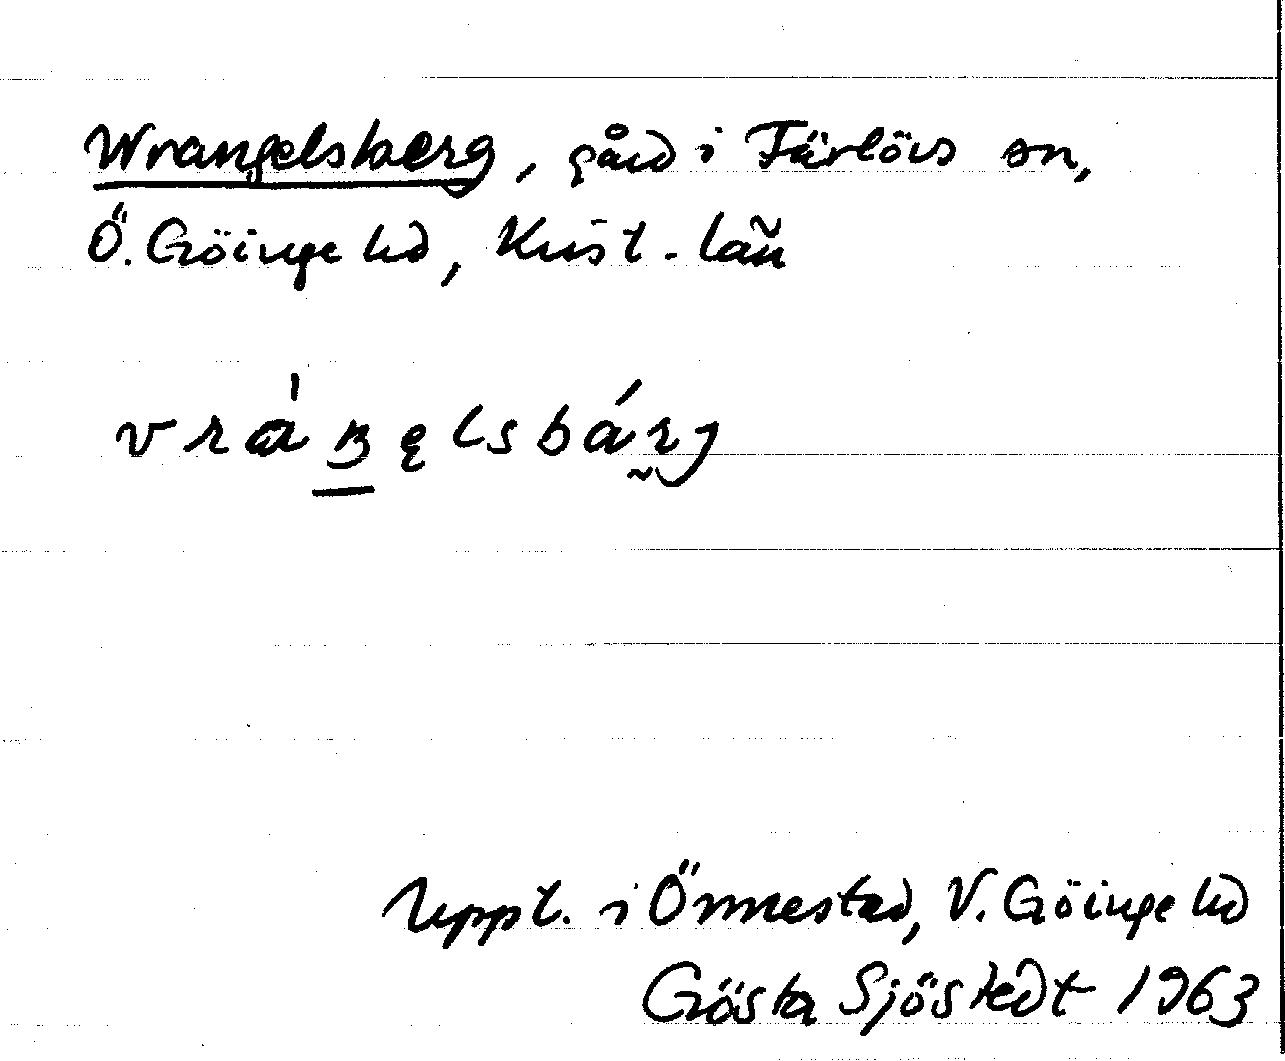 Wrangelsberg, gård i Färlövs sn,
Ö. Göinge hd, Krist. län
vráŋęlsbárg
Uppt. i Önnestad, V. Göinge hd
Gösta Sjöstedt 1963